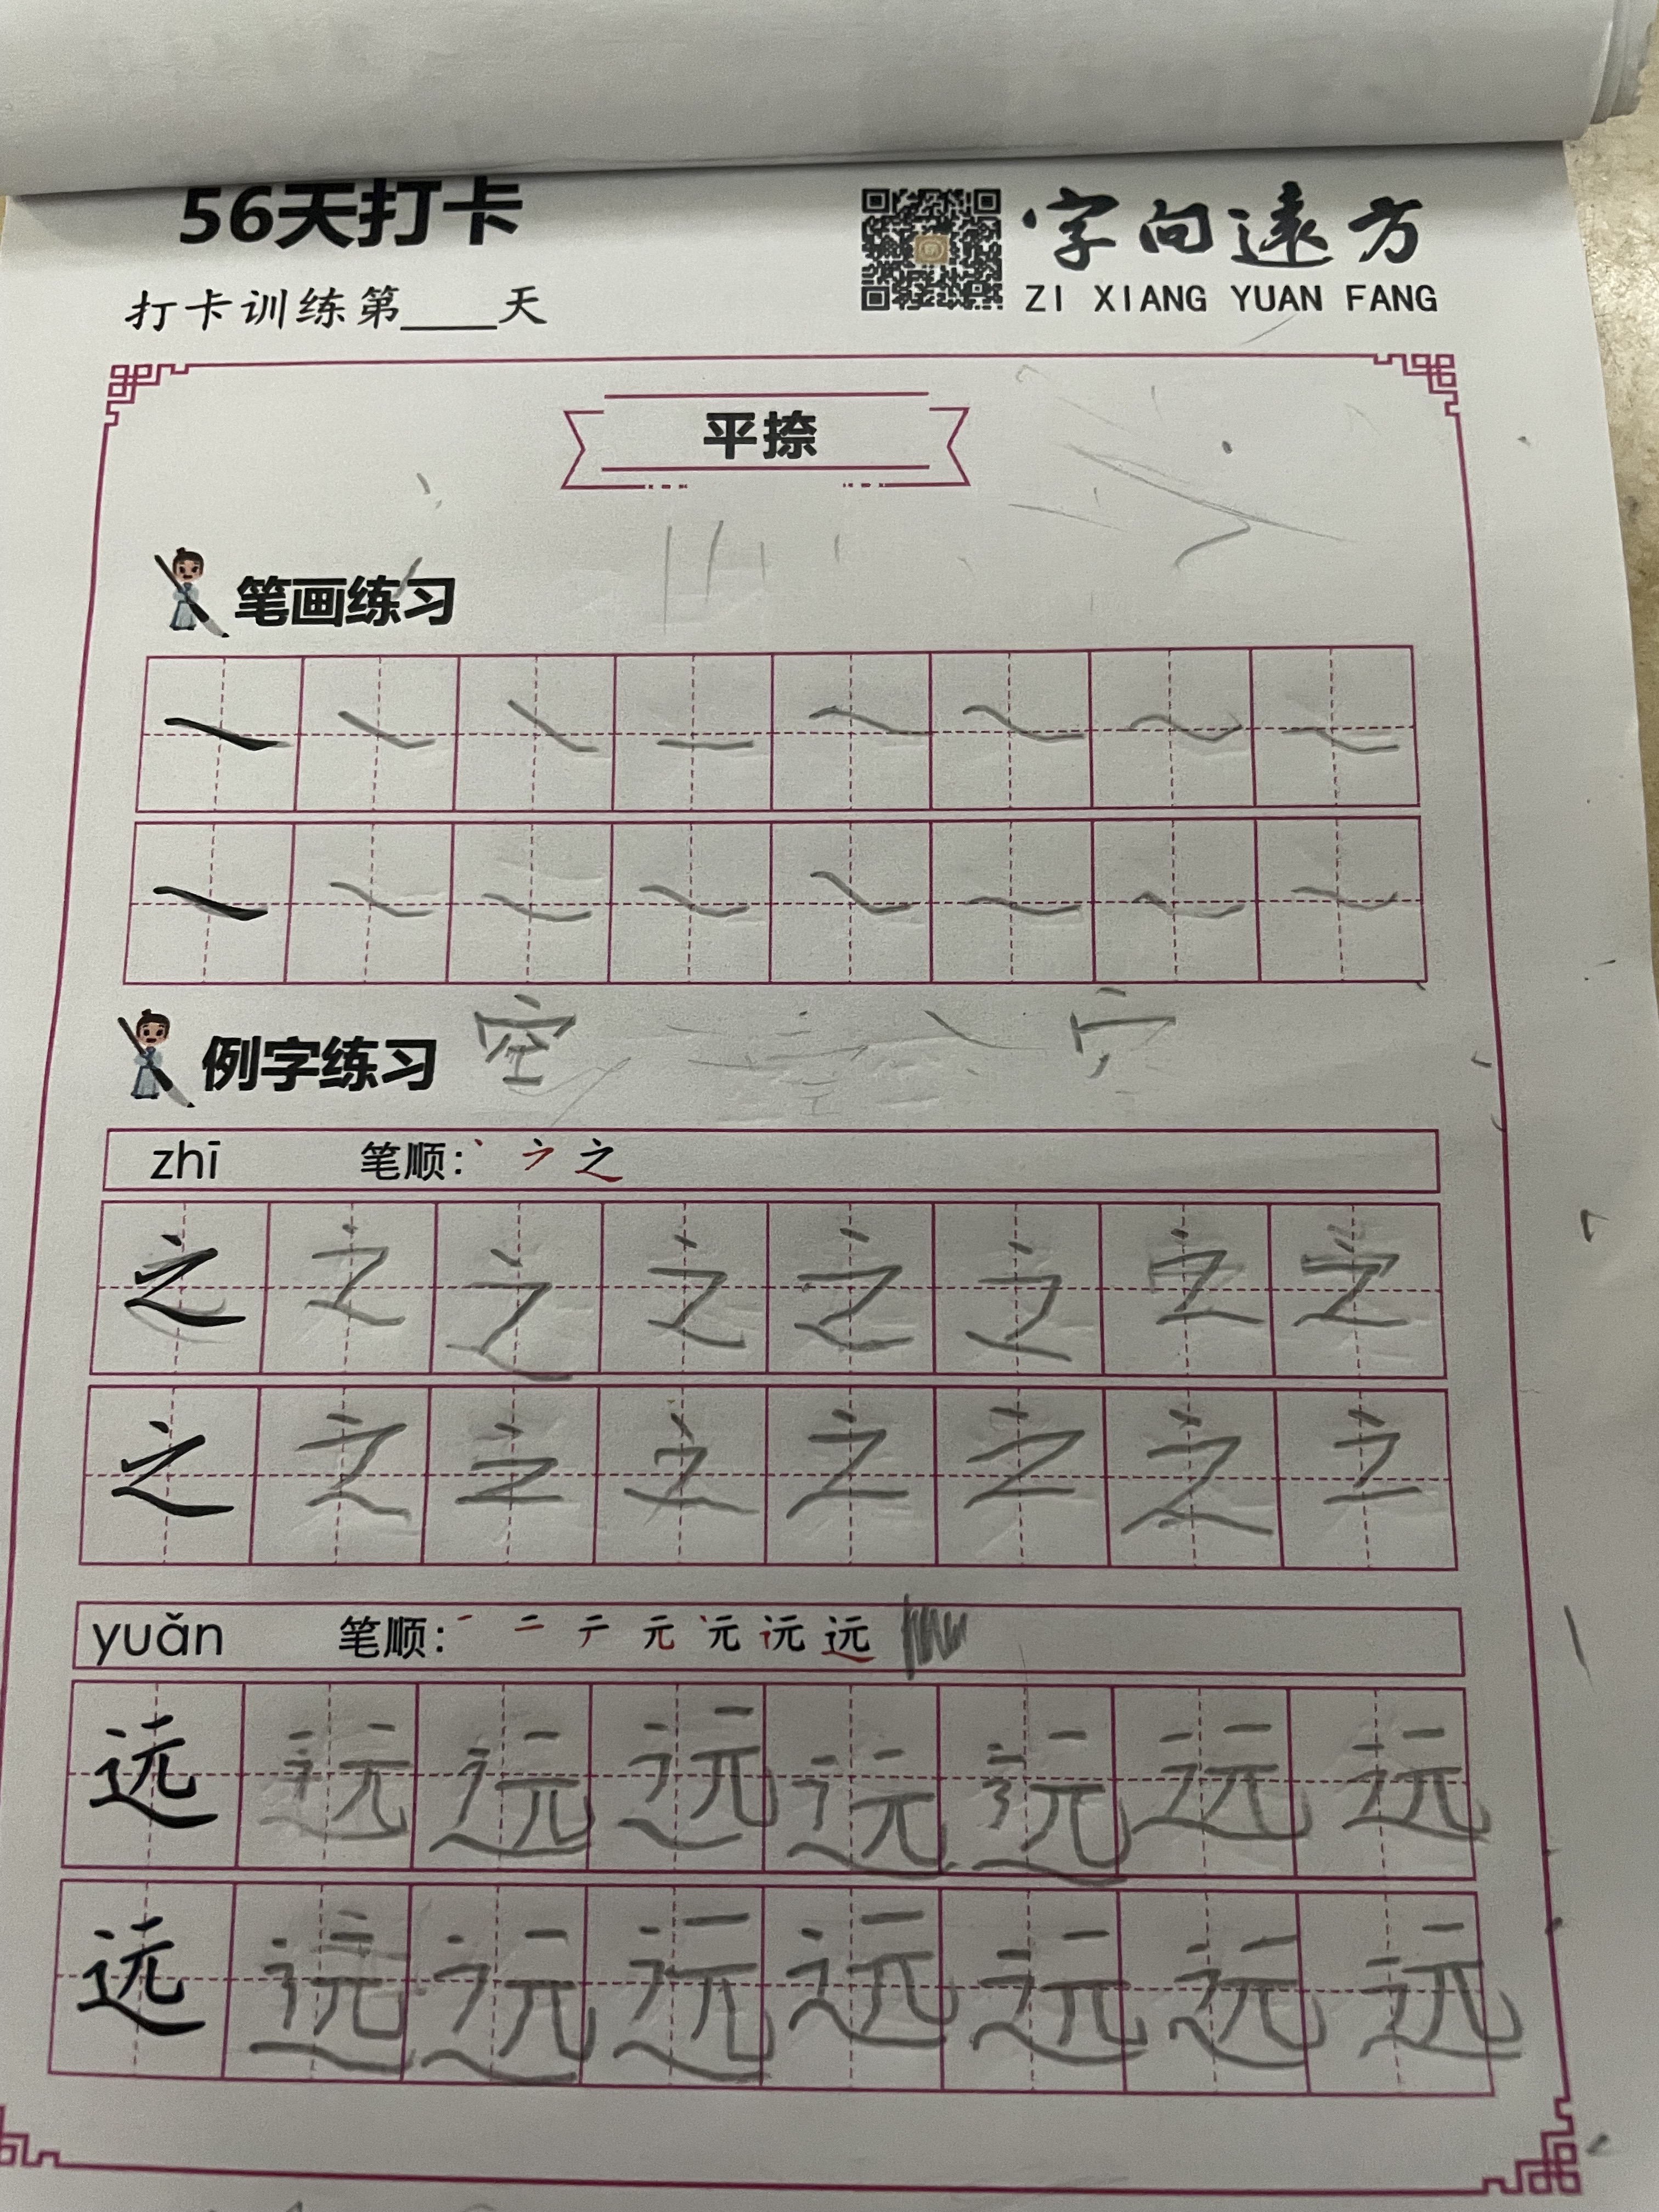 56天打卡
字向遠方
打卡训练第____天
ZI XIANG YUAN FANG
平捺
笔画练习
例字练习 空 宀
zhī 笔顺：丶 ㇇ 之
之 之 之 之 之 之 之 之
之 之 之 之 之 之 之 之
yuǎn 笔顺：一 二 テ 元 远
远 远 远 远 远 远 远 远
远 远 远 远 远 远 远 远